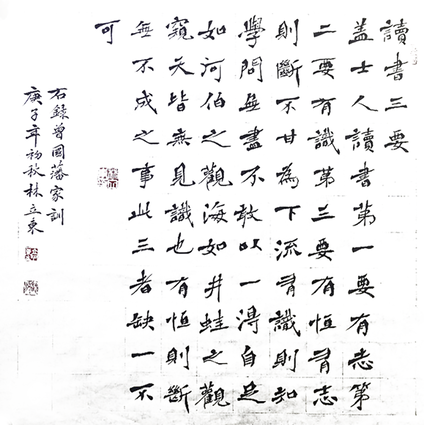 讀書三要
盖士人讀書第一要有志第
二要有識第三要有恒有志
則斷不甘為下流有識則知
學問無盡不敢以一得自足
如河伯之觀海如井蛙之觀
窺天皆無見識也有恒則斷
無不成之事此三者缺一不
可
右錄曾國藩家訓
庚子年初秋林立東